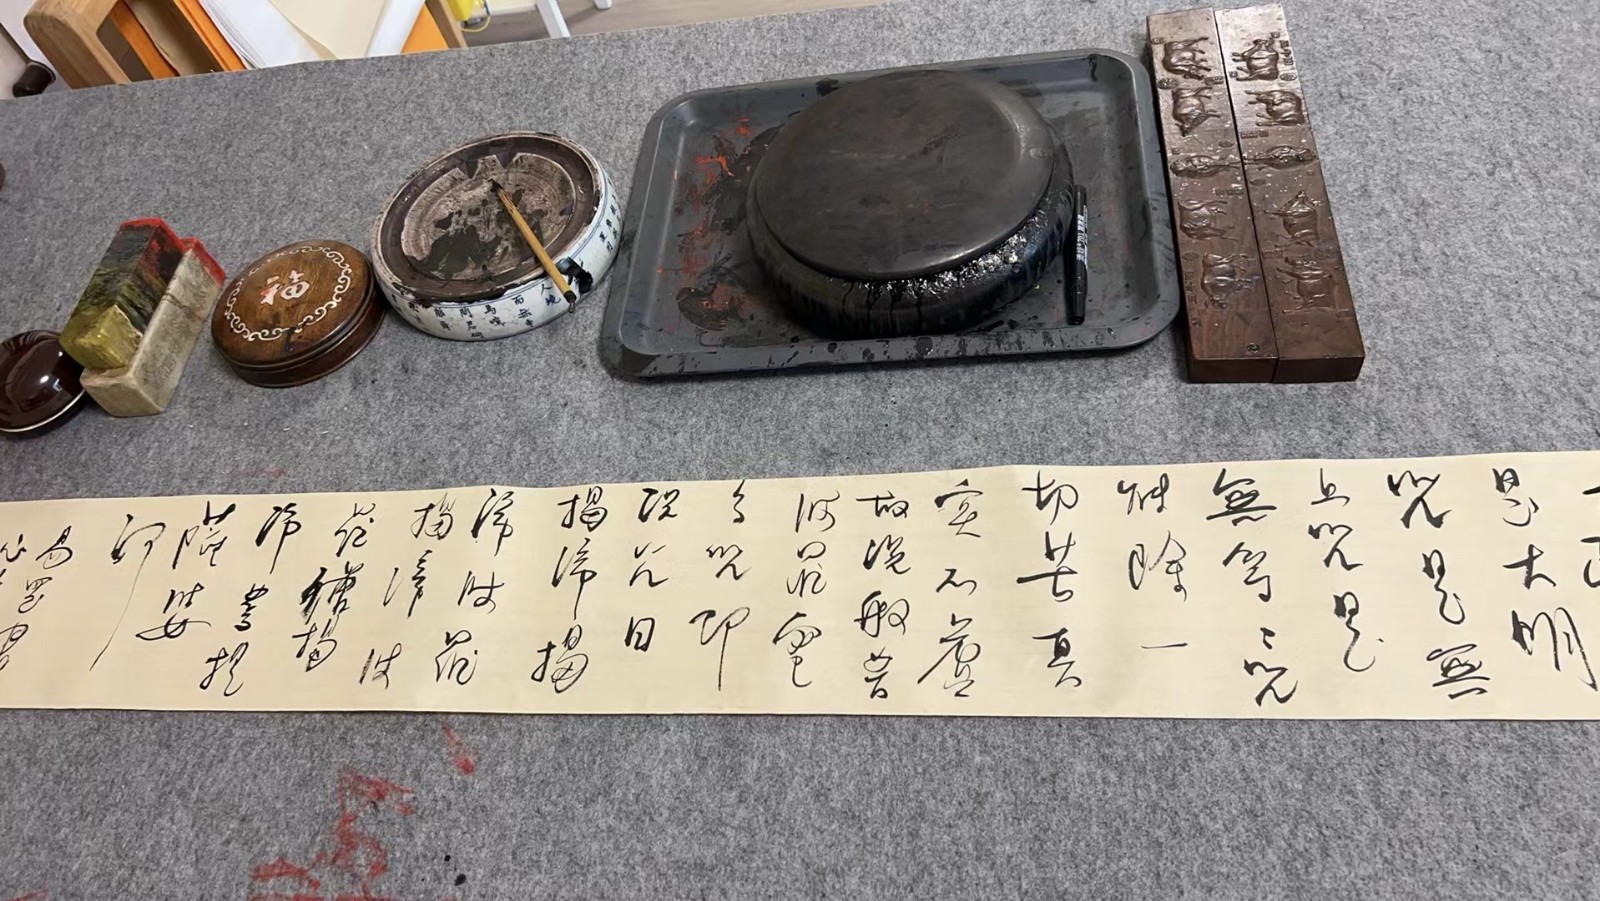 福
人境
而無車
馬喧
問君
是大明
咒是無
上咒是
無等々咒
能除一
切苦真
實不虛
故說般若
波羅蜜
多咒即
說咒曰
揭諦揭
諦波羅
揭諦波
羅僧揭
諦菩提
薩婆
訶